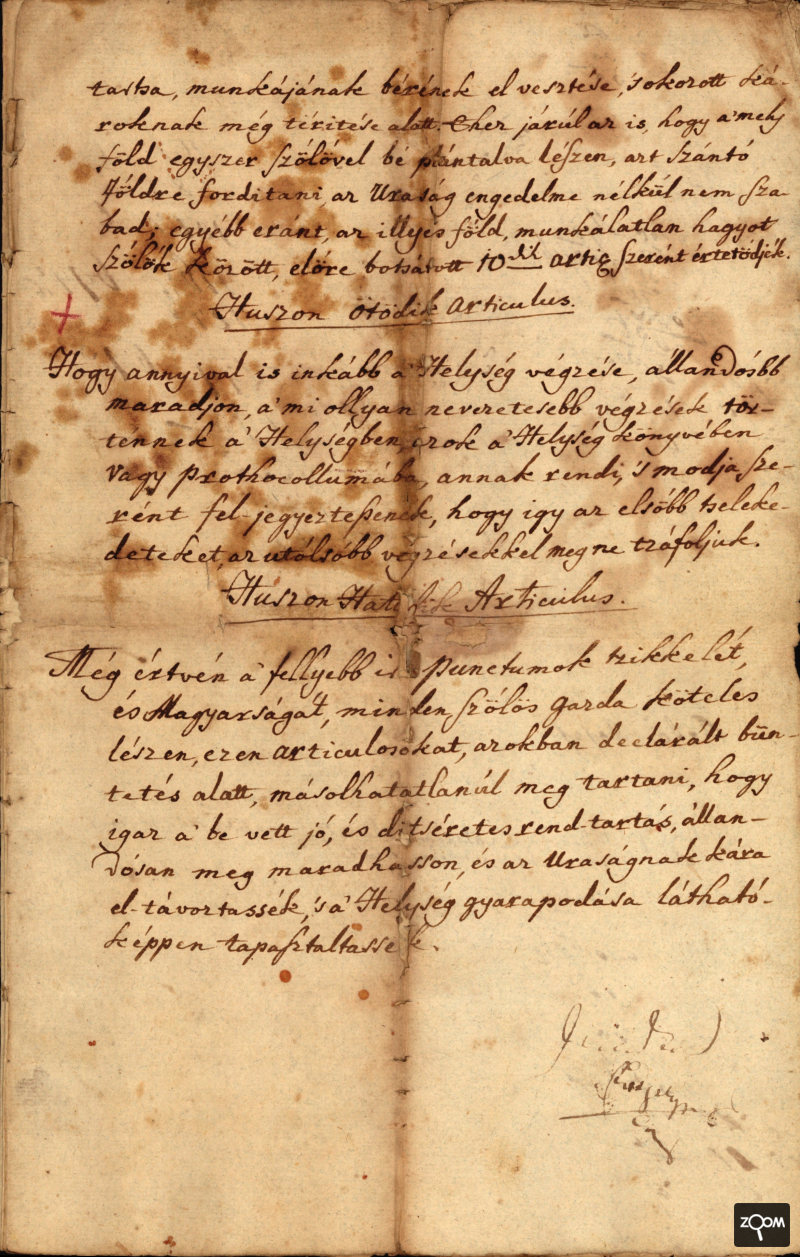 tartsa, munkájának bérének el vesztése, 's okozott ká-
roknak még téritése alatt. Ehez járúl az is, hogy a' mely
föld egyszer szőlövel bé plántalva lészen, azt szántó
földre forditani az Uraság engedelme nélkűl nem sza-
bad; egyébb eránt, az illyes föld, munkálatlan hagyot
szőlök között, elöre botsátott 10dik artic szerént értetödjék.
Huszon ötödik Articulus.
Hogy annyival is inkább a' Helység végzése, állandósbb
maradjon, a' mi ollyan nevezetesebb végzések tör-
ténnek a' Helységben, ezok a' Helység könyvében
vagy prothocollumába, annak rendi, 's modja sze-
rént fel-jegyeztessenek, hogy igy az elsőbb tseleke-
deteket, az utólsóbb végzésekkel meg ne tzáfoljuk.
Huszon Hatodik Articulus.
Még értvén a' fellyebb irt punctumok tzikkelét,
és Magyarságát, minden szőlős gazda köteles
lészen, ezen articulosokat, azokban declárált bün-
tetés alatt, másolhatatlanúl meg tartani, hogy
igaz a' be vett jó, és ditséretes rend-tartás, állan-
dósan meg maradhasson, és az Uraságnak kára
el-távoztassék, 's a' Helység gyarapodása látható-
képpen tapasztaltassék.
ZOOM